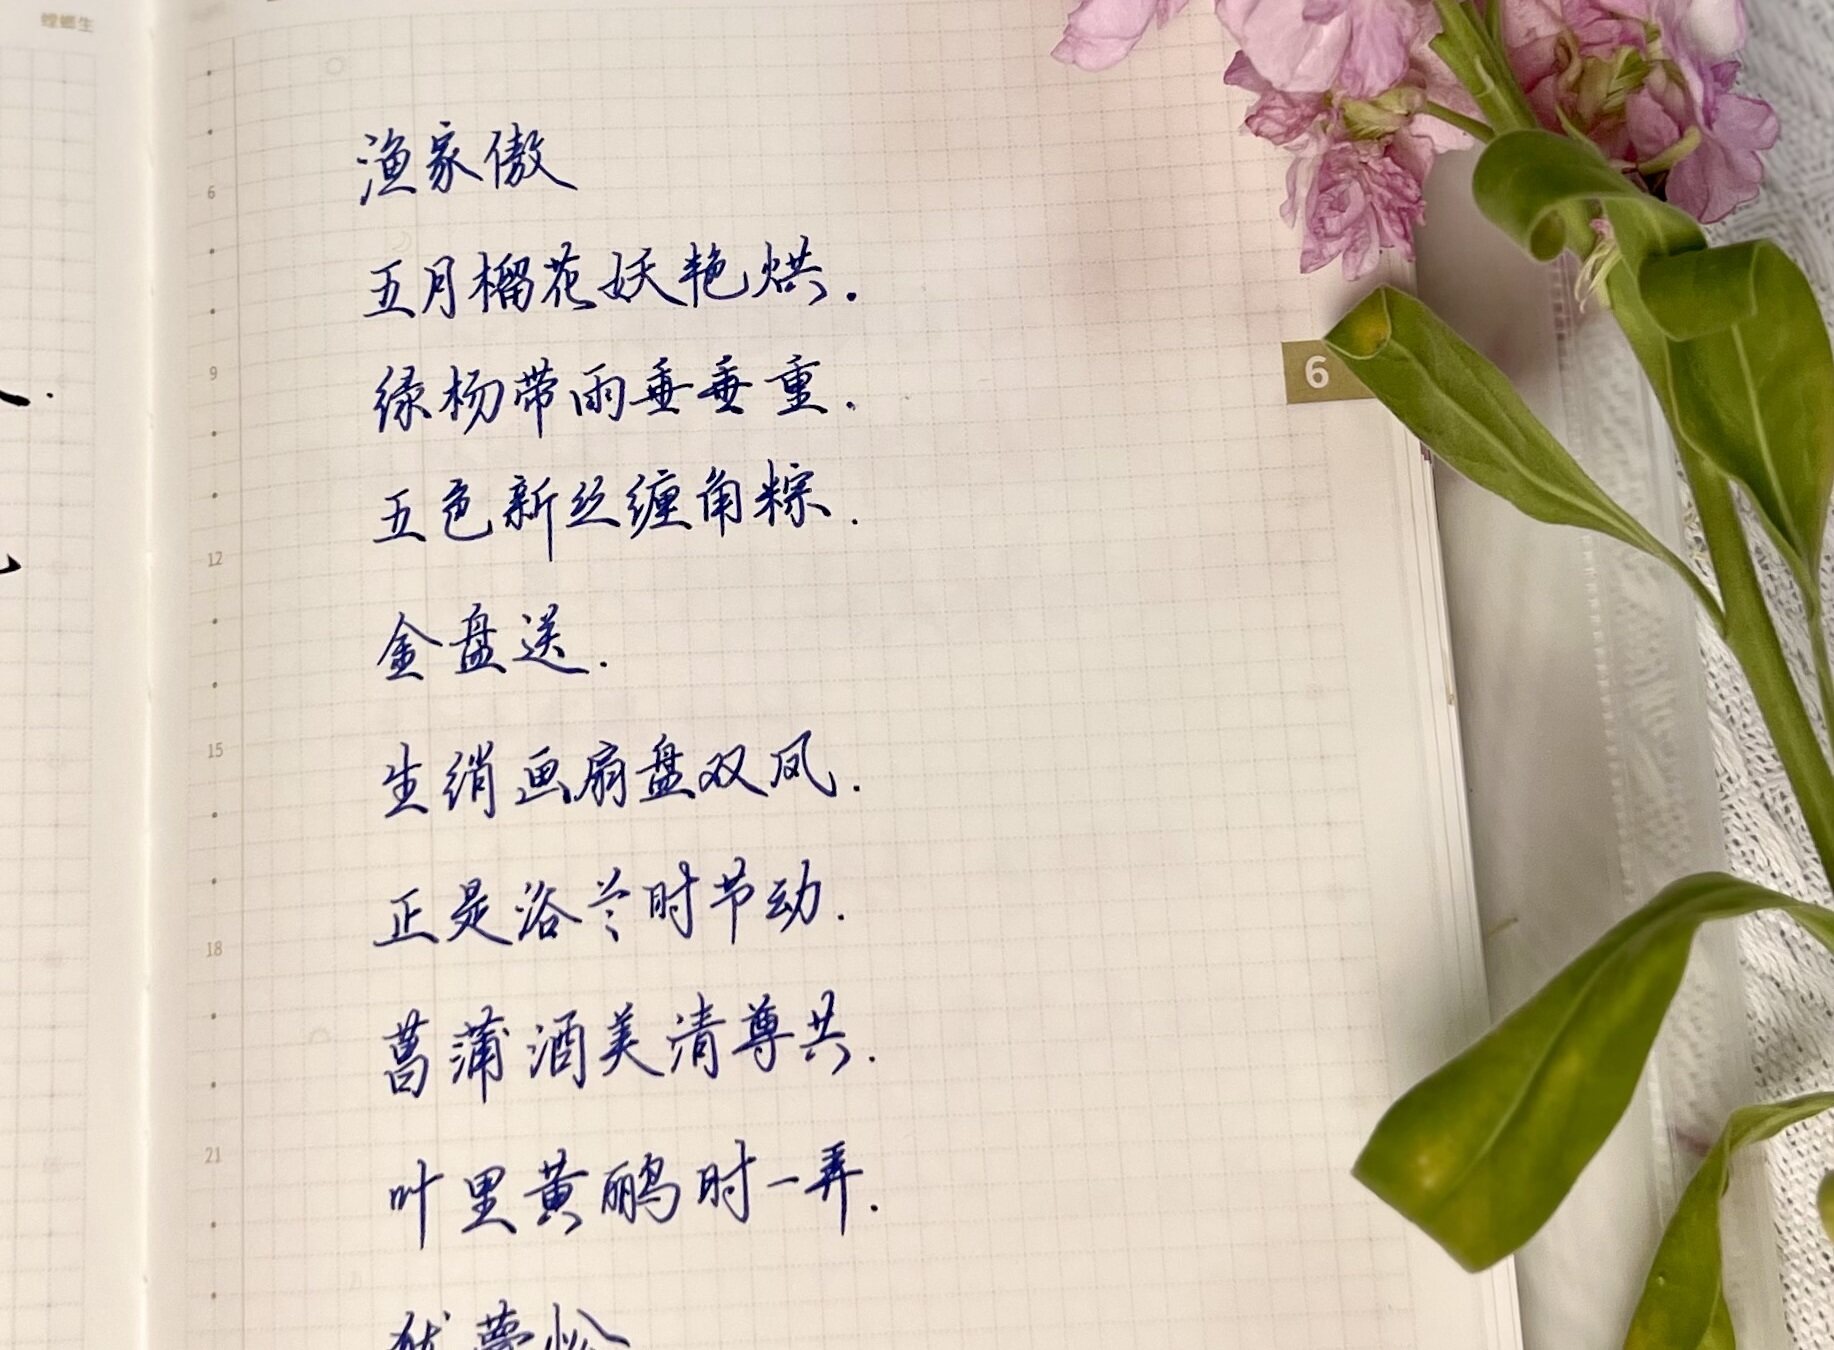 螳螂生
渔家傲
6
五月榴花妖艳烘.
绿杨带雨垂垂重.
9
6
五色新丝缠角粽.
12
金盘送.
生绡画扇盘双凤.
15
正是浴兰时节动.
18
菖蒲酒美清尊共.
叶里黄鹂时一弄.
21
犹